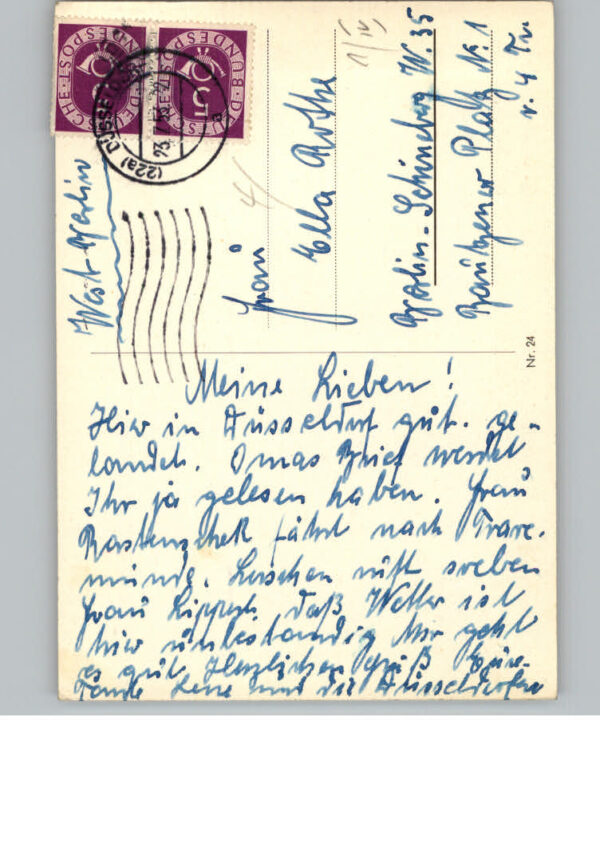 DEUTSCHE BUNDESPOST
5
DEUTSCHE BUNDESPOST
5
(22a) DÜSSELDORF
23.7.53
West-Berlin
1/IV
4/
Frau
Ella Rothe
Berlin-Schöneberg W. 35
Bautzener Platz Nr. 1
v. 4 Tr
Nr. 24
Meine Lieben!
Hier in Düsseldorf gut. ge-
landet. Omas Brief werdet
Ihr ja gelesen haben. Frau
fährt nach Trave-
münde. ruft soeben
Frau daß Wetter ist
hier unbeständig Mir geht
es gut. Herzlichen Gruß Eure
Tante Lene und die Düsseldorfer